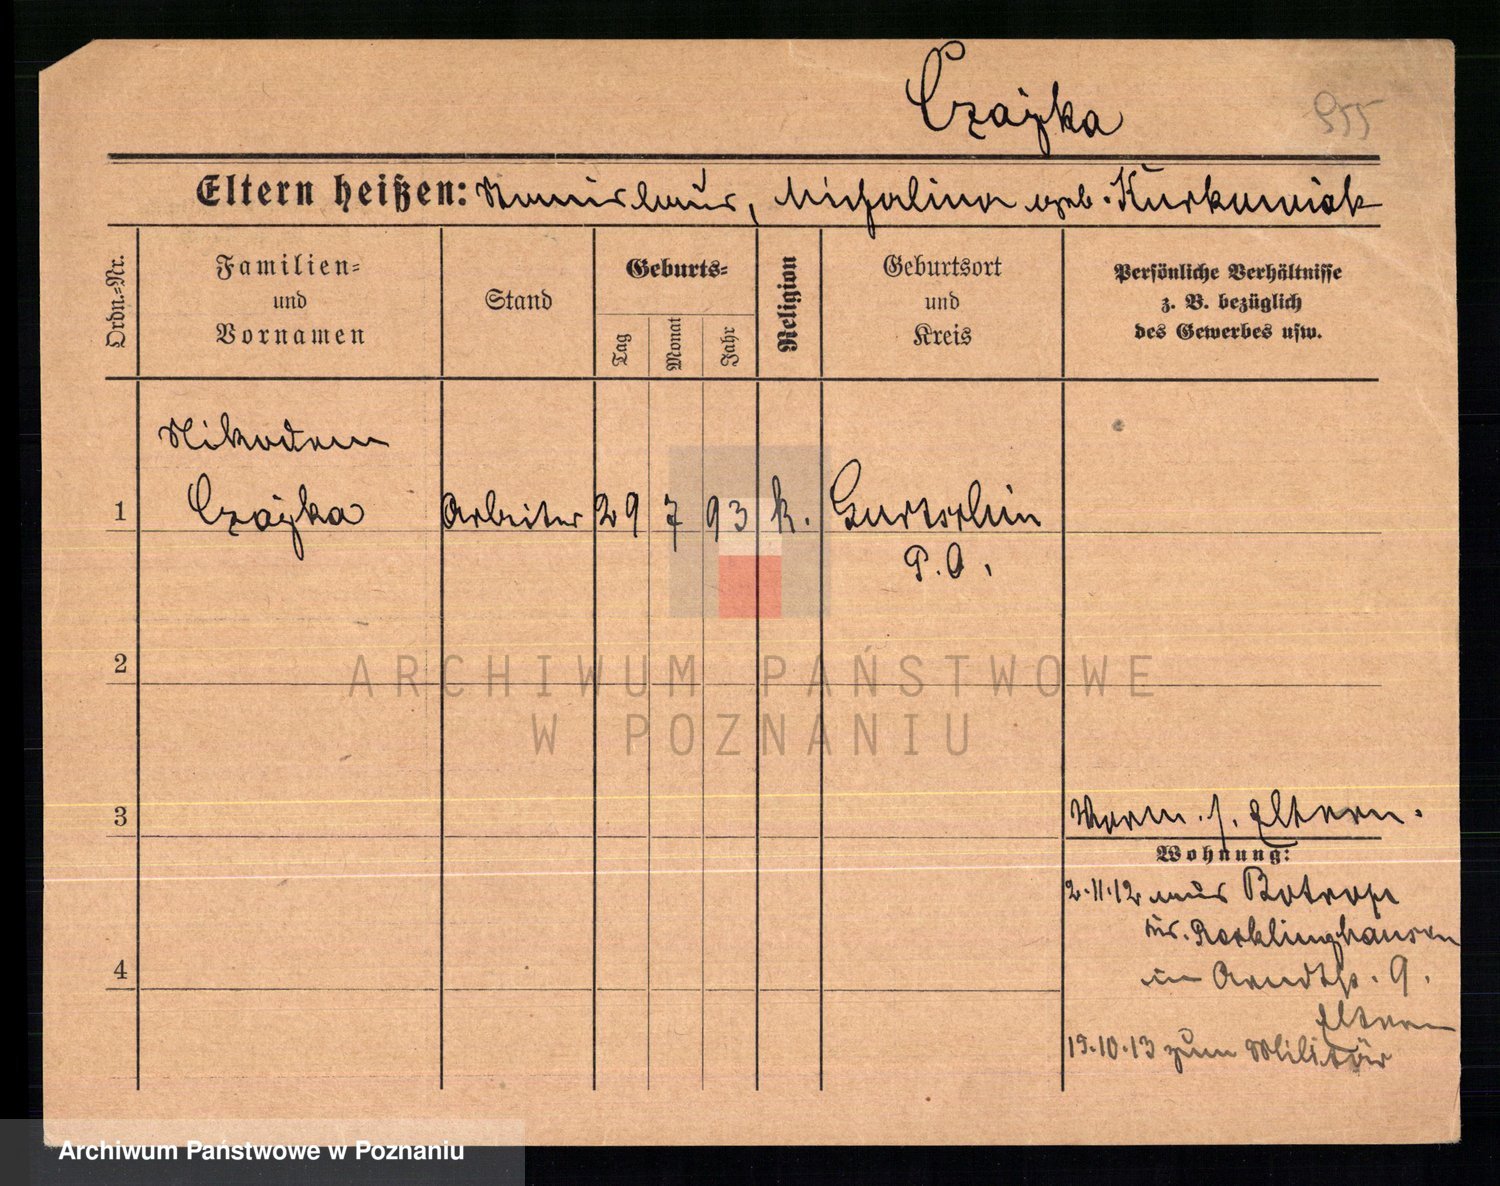 Czajka
955
Eltern heißen: Stanislaus, Michalina geb. Kurkowiak
Ordn.=Nr.
Familien=
und
Vornamen
Stand
Geburts=
Tag
Monat
Jahr
Religion
Geburtsort
und
Kreis
Persönliche Verhältnisse
z. B. bezüglich
des Gewerbes usw.
Nikodem
1 Czajka Arbeiter 29 7 93 k. Gurtschin
P. O.
2
ARCHIWUM PAŃSTWOWE
W POZNANIU
3
Eltern.
Wohnung:
2.11.12 aus Botrop
Recklinghausen
4
in Arndtstr. 9.
Eltern
19.10.13 zum Militär
Archiwum Państwowe w Poznaniu